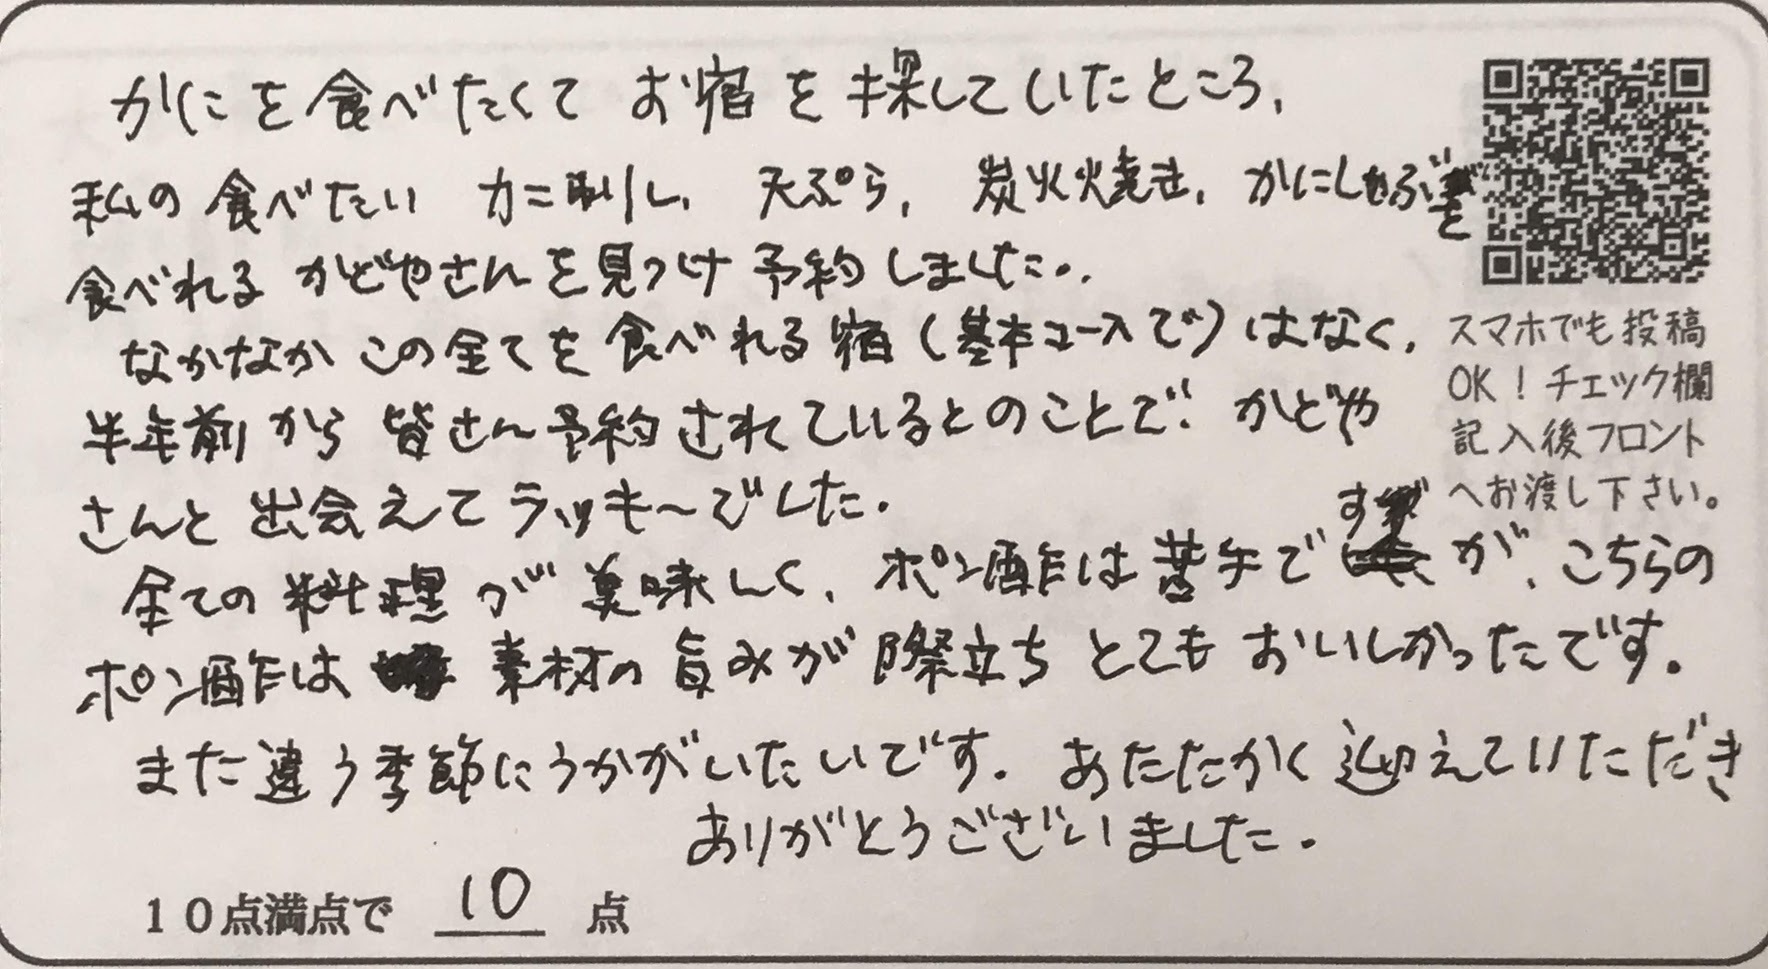 かにを食べたくてお宿を探していたところ、
私の食べたい カニ刺し、天ぷら、炭火焼き、かにしゃぶを
食べれる かどやさんを見つけ予約しました。
なかなかこの全てを食べれる宿(基本コースで)はなく、
半年前から皆さん予約されているとのことで、かどや
さんと出会えてラッキーでした。
全ての料理が美味しく、ポン酢は苦手ですが、こちらの
ポン酢は 素材の旨みが際立ちとてもおいしかったです。
また違う季節にうかがいたいです。あたたかく迎えていただき
ありがとうございました。
スマホでも投稿
OK！チェック欄
記入後フロント
へお渡し下さい。
10点満点で 10 点